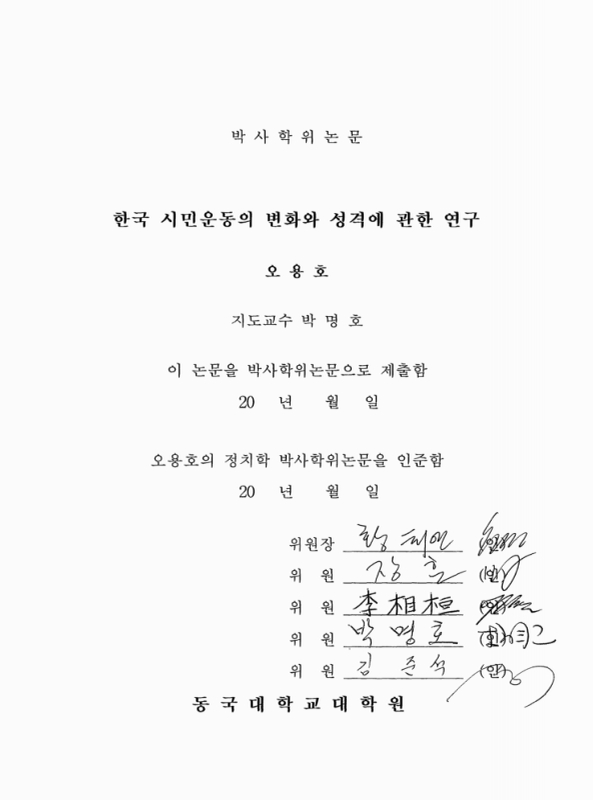 박 사 학 위 논 문
한국 시민운동의 변화와 성격에 관한 연구
오 용 호
지도교수 박 명 호
이 논문을 박사학위논문으로 제출함
20 년 월 일
오용호의 정치학 박사학위논문을 인준함
20 년 월 일
위원장 황 태연
위 원 장 훈 (인)
위 원 李相桓
위 원 박 명 호
위 원 김 준 석 (인)
동 국 대 학 교 대 학 원